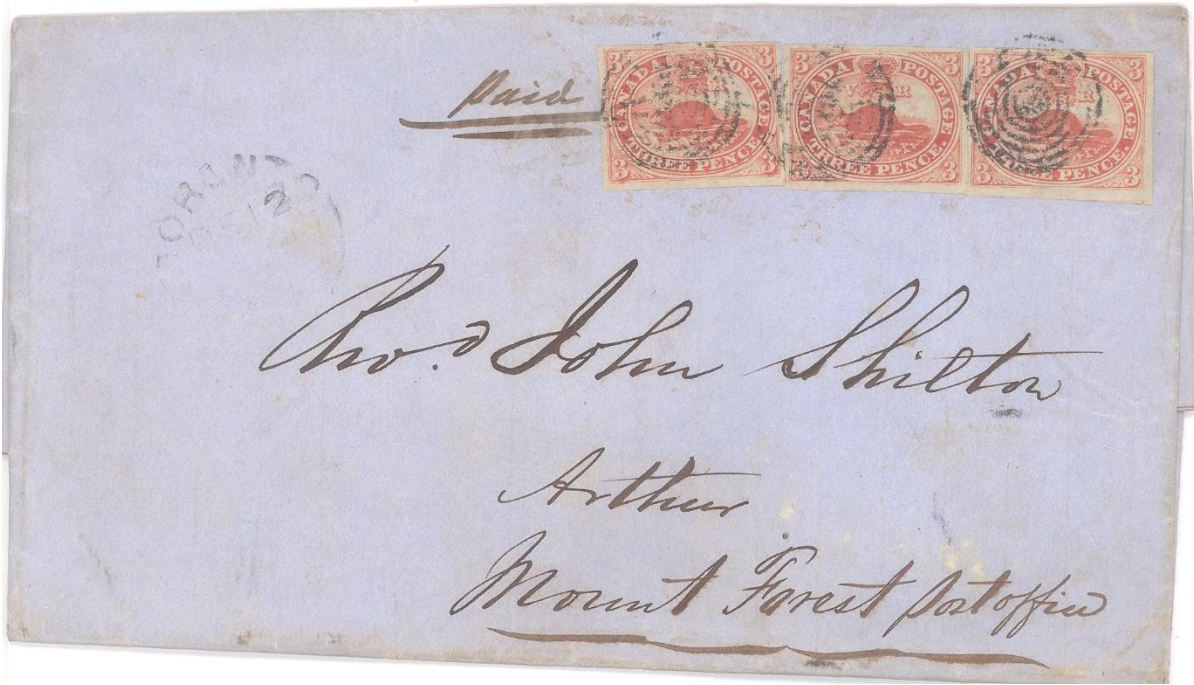 Paid
3 CANADA POSTAGE. 3
THREE PENCE.
3 3
3 CANADA POSTAGE. 3
V R
THREE PENCE.
3 3
3 CANADA POSTAGE. 3
V R
THREE PENCE.
3 3
TORONTO
12
John Shilton
Arthur
Mount Forest post office